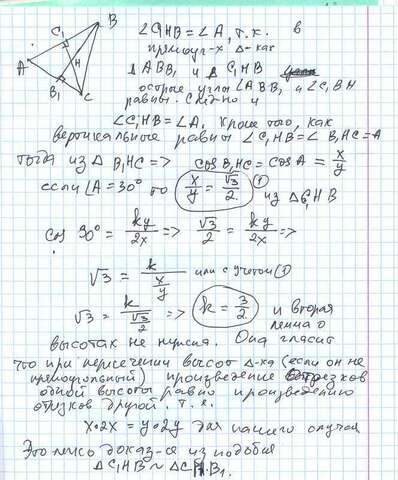 ∠C₁HB = ∠A, т.к. в
прямоуг-х Δ-ках
ΔABB₁ и ΔC₁HB
острые углы ∠ABB₁ и ∠C₁BH
равны. и
∠C₁HB = ∠A. Кроме того, как
вертикальные равны ∠C₁HB = ∠B₁HC = A
Тогда из ΔB₁HC => cosB₁HC = cosA = x/y
если ∠A = 30° то x/y = √3/2. ① из ΔC₁HB
cos 30° = ky/2x => √3/2 = ky/2x =>
√3 = k/(x/y) или с учетом ①
√3 = k/(√3/2) => k = 3/2 и вторая
лемма о
высотах не нужна. Она гласит
что при пересечении высот Δ-ка (если он не
прямоугольный) произведение отрезков
одной высоты равно произведению
отрезков другой. т.е.
x·2x = y·2y для нашего случая
Это легко доказ-ся из подобия
ΔC₁HB ~ ΔCHB₁.
A
B
C
C₁
B₁
H